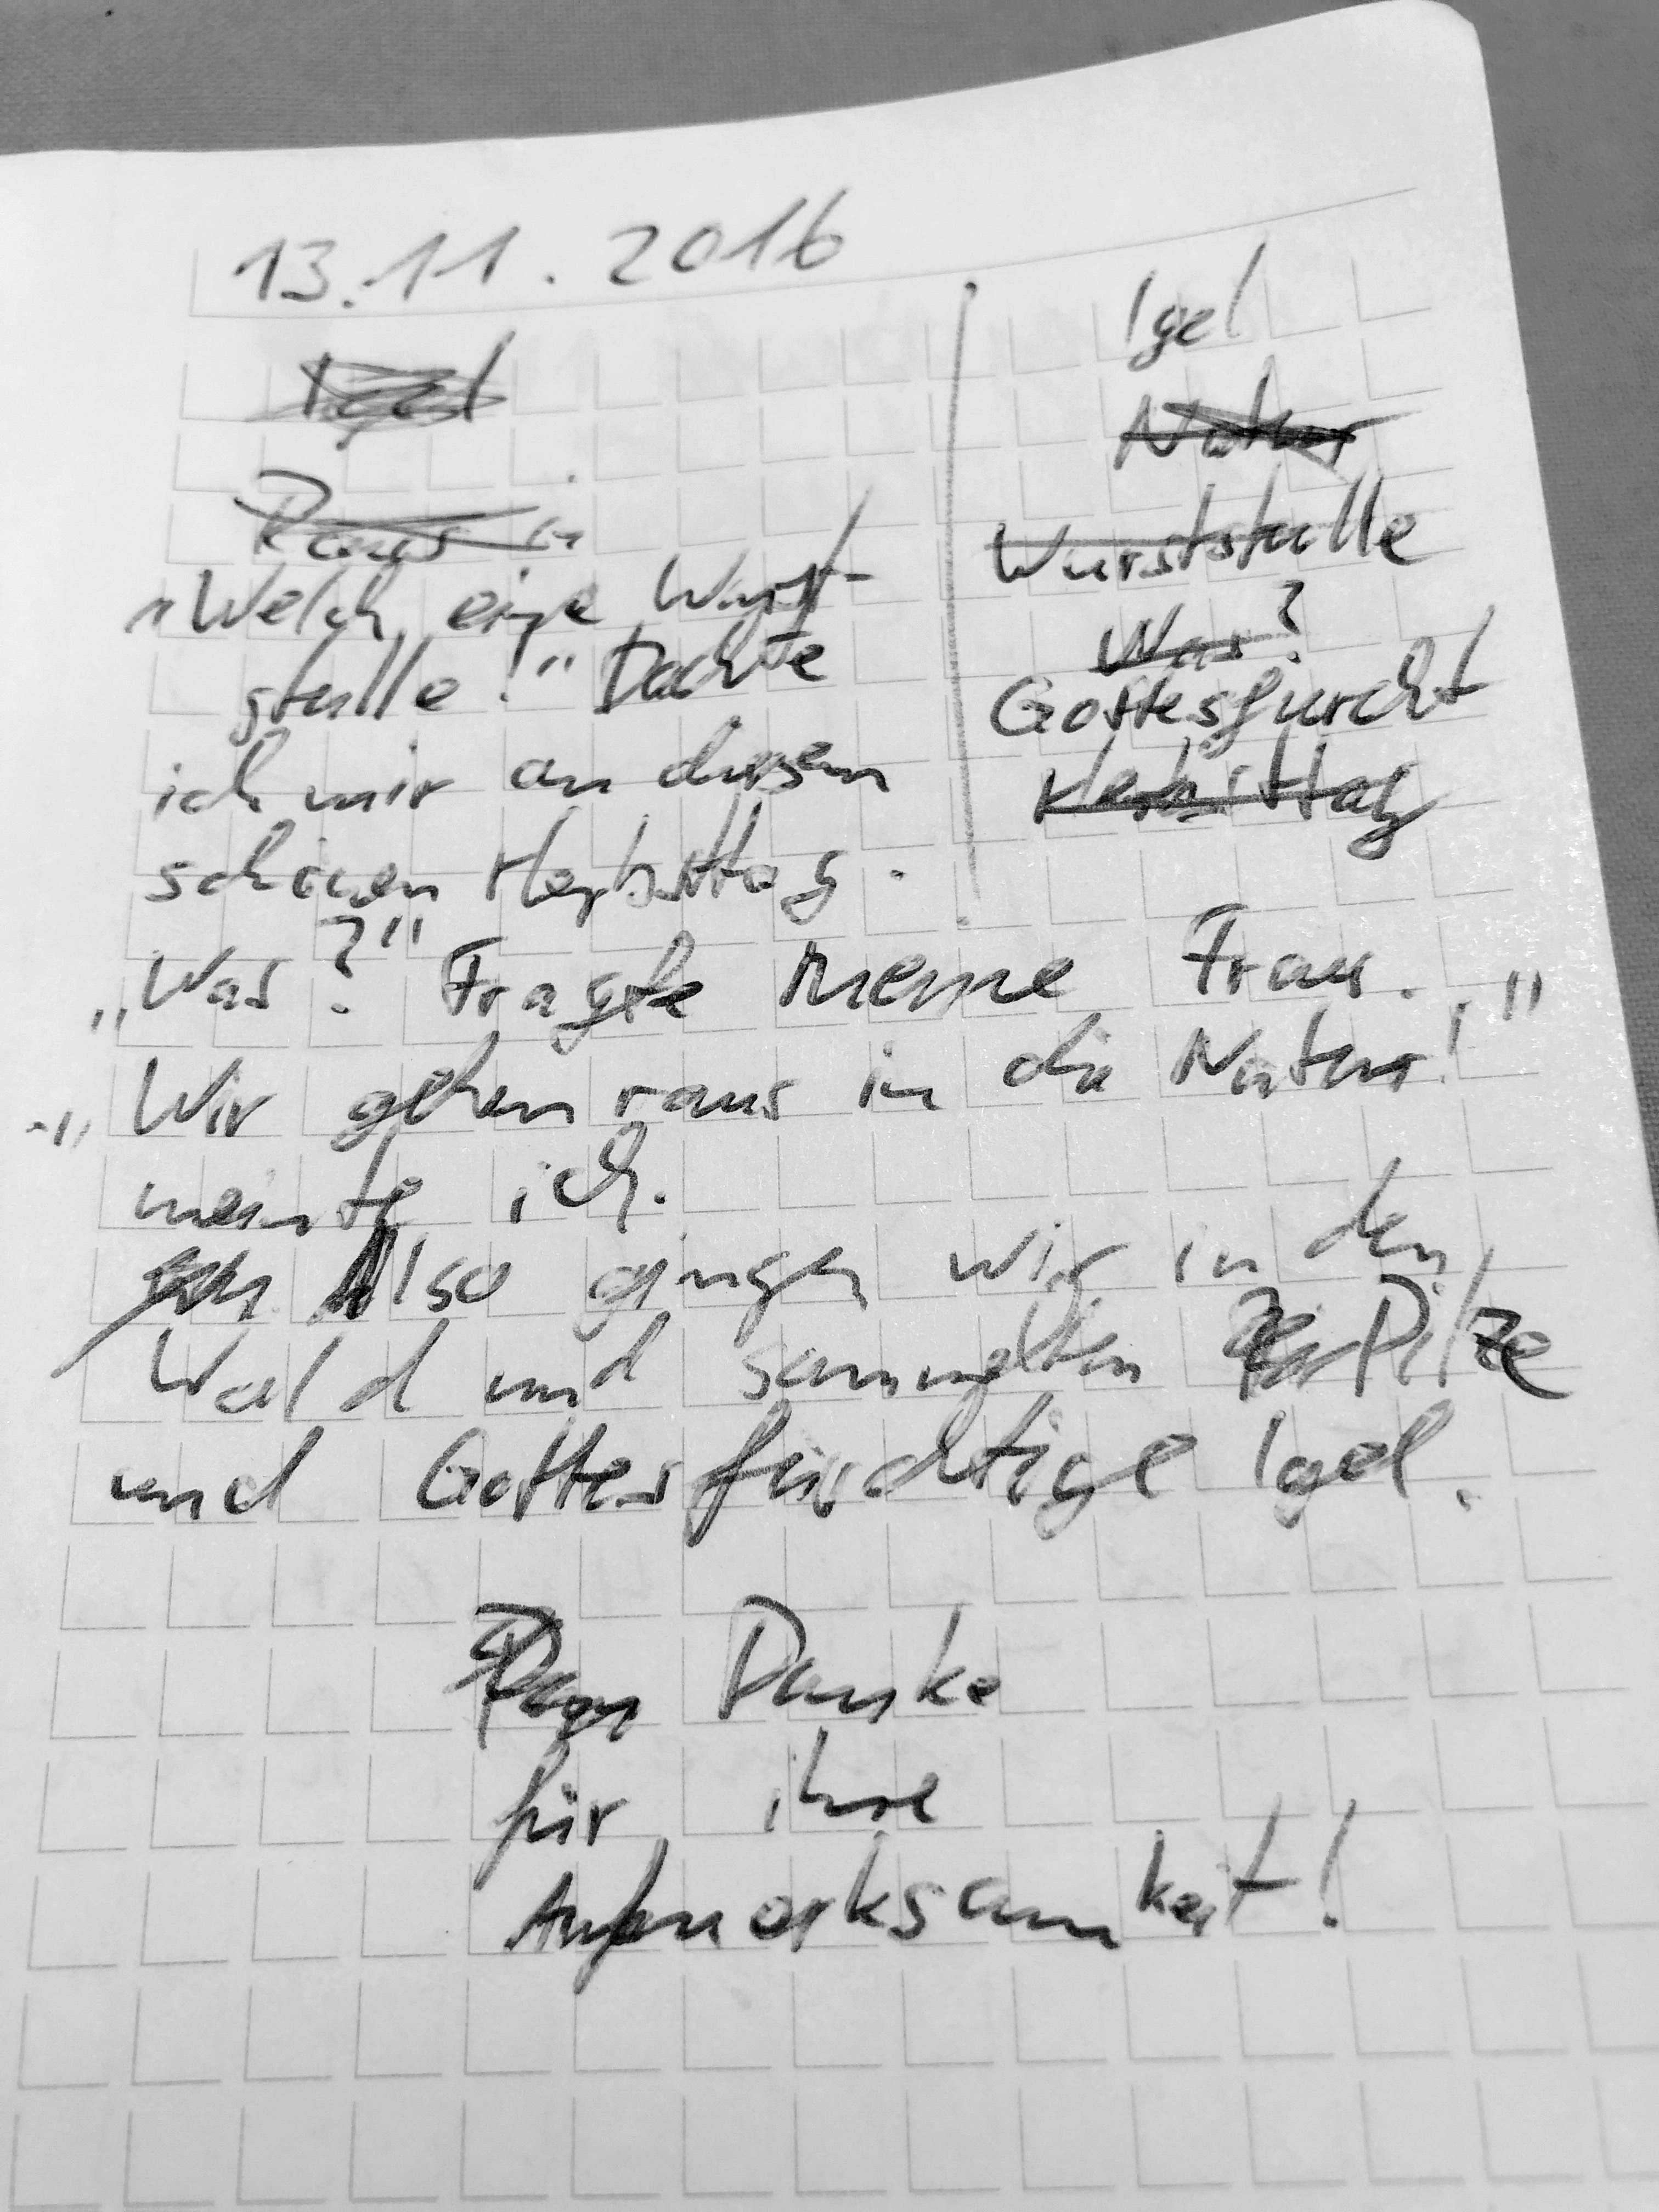 13.11.2016
Igel
Raus in
„Welch eine Wurst-
stulle!" Dachte
ich mir an diesem
schönen Herbsttag.
Igel
Natur
Wurststulle
Was?
Gottesfurcht
Herbsttag
„Was?" Fragte meine Frau.
„Wir gehen raus in die Natur!"
meinte ich.
Also gingen wir in den
Wald und sammelten Pilze
und Gottesfürchtige Igel.
Danke
für ihre
Aufmerksamkeit!